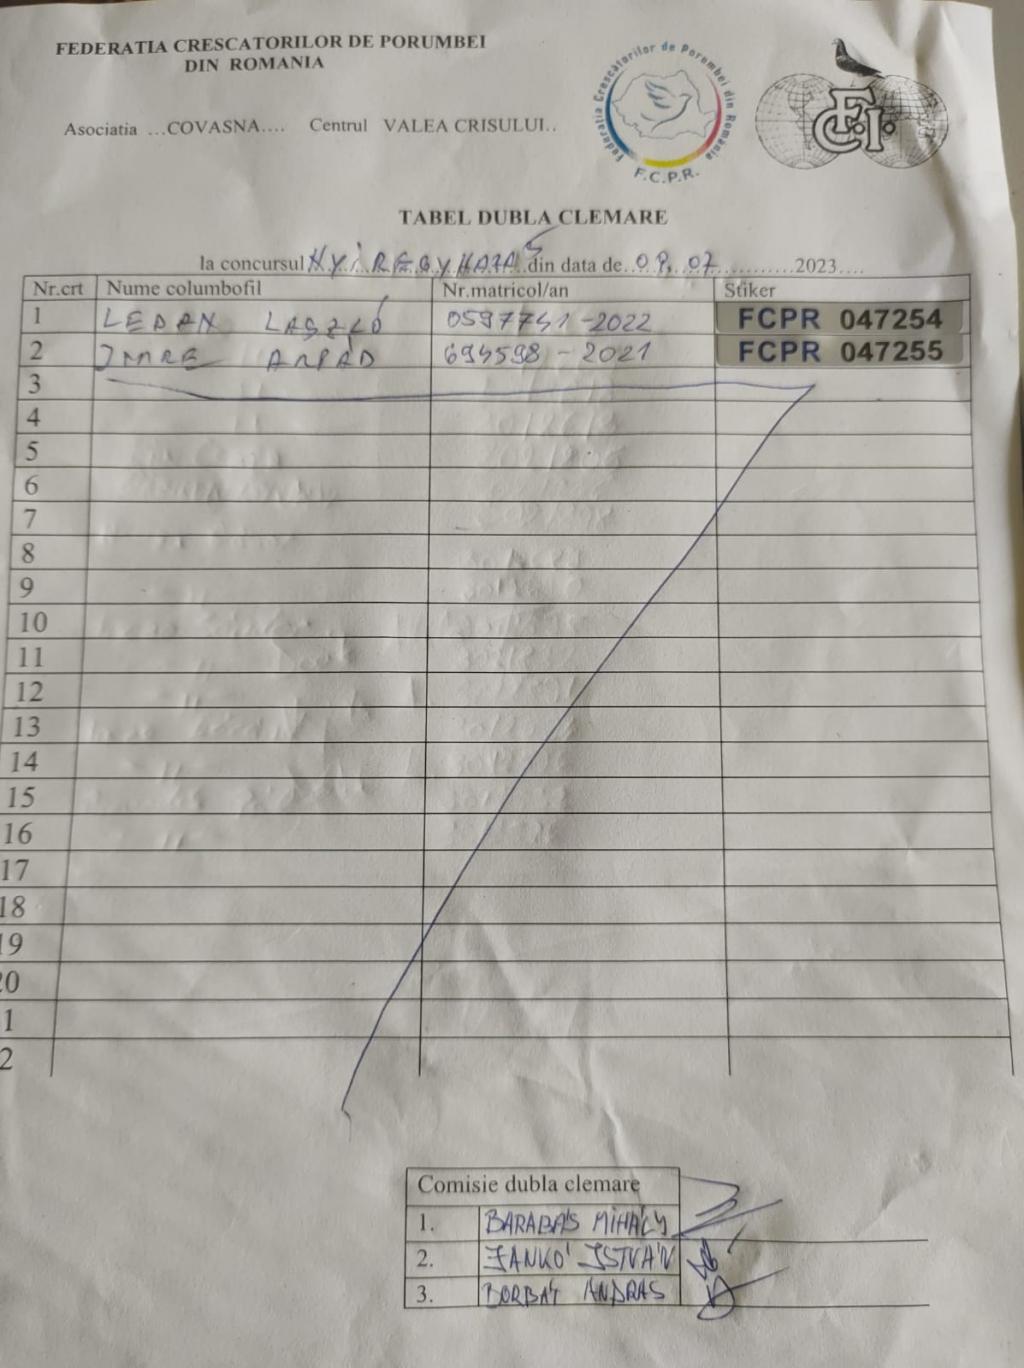 FEDERATIA CRESCATORILOR DE PORUMBEI
DIN ROMANIA
Asociatia ...COVASNA.... Centrul VALEA CRISULUI..
Federatia Crescătorilor de Porumbei din Romania
F.C.P.R.
F.C.I.
TABEL DUBLA CLEMARE
la concursul NYIREGYHAZAS din data de..08.07............2023....
Nr.crt Nume columbofil Nr.matricol/an Stiker
1 LEDAN LASZLÓ 0597741-2022 FCPR 047254
2 IMRE ARPÁD 694598-2021 FCPR 047255
3
4
5
6
7
8
9
10
11
12
13
14
15
16
17
18
19
20
1
2
Comisie dubla clemare
1. BARABÁS MIHÁLY
2. JANKÓ ISTVÁN
3. BORBÁT ANDRAS